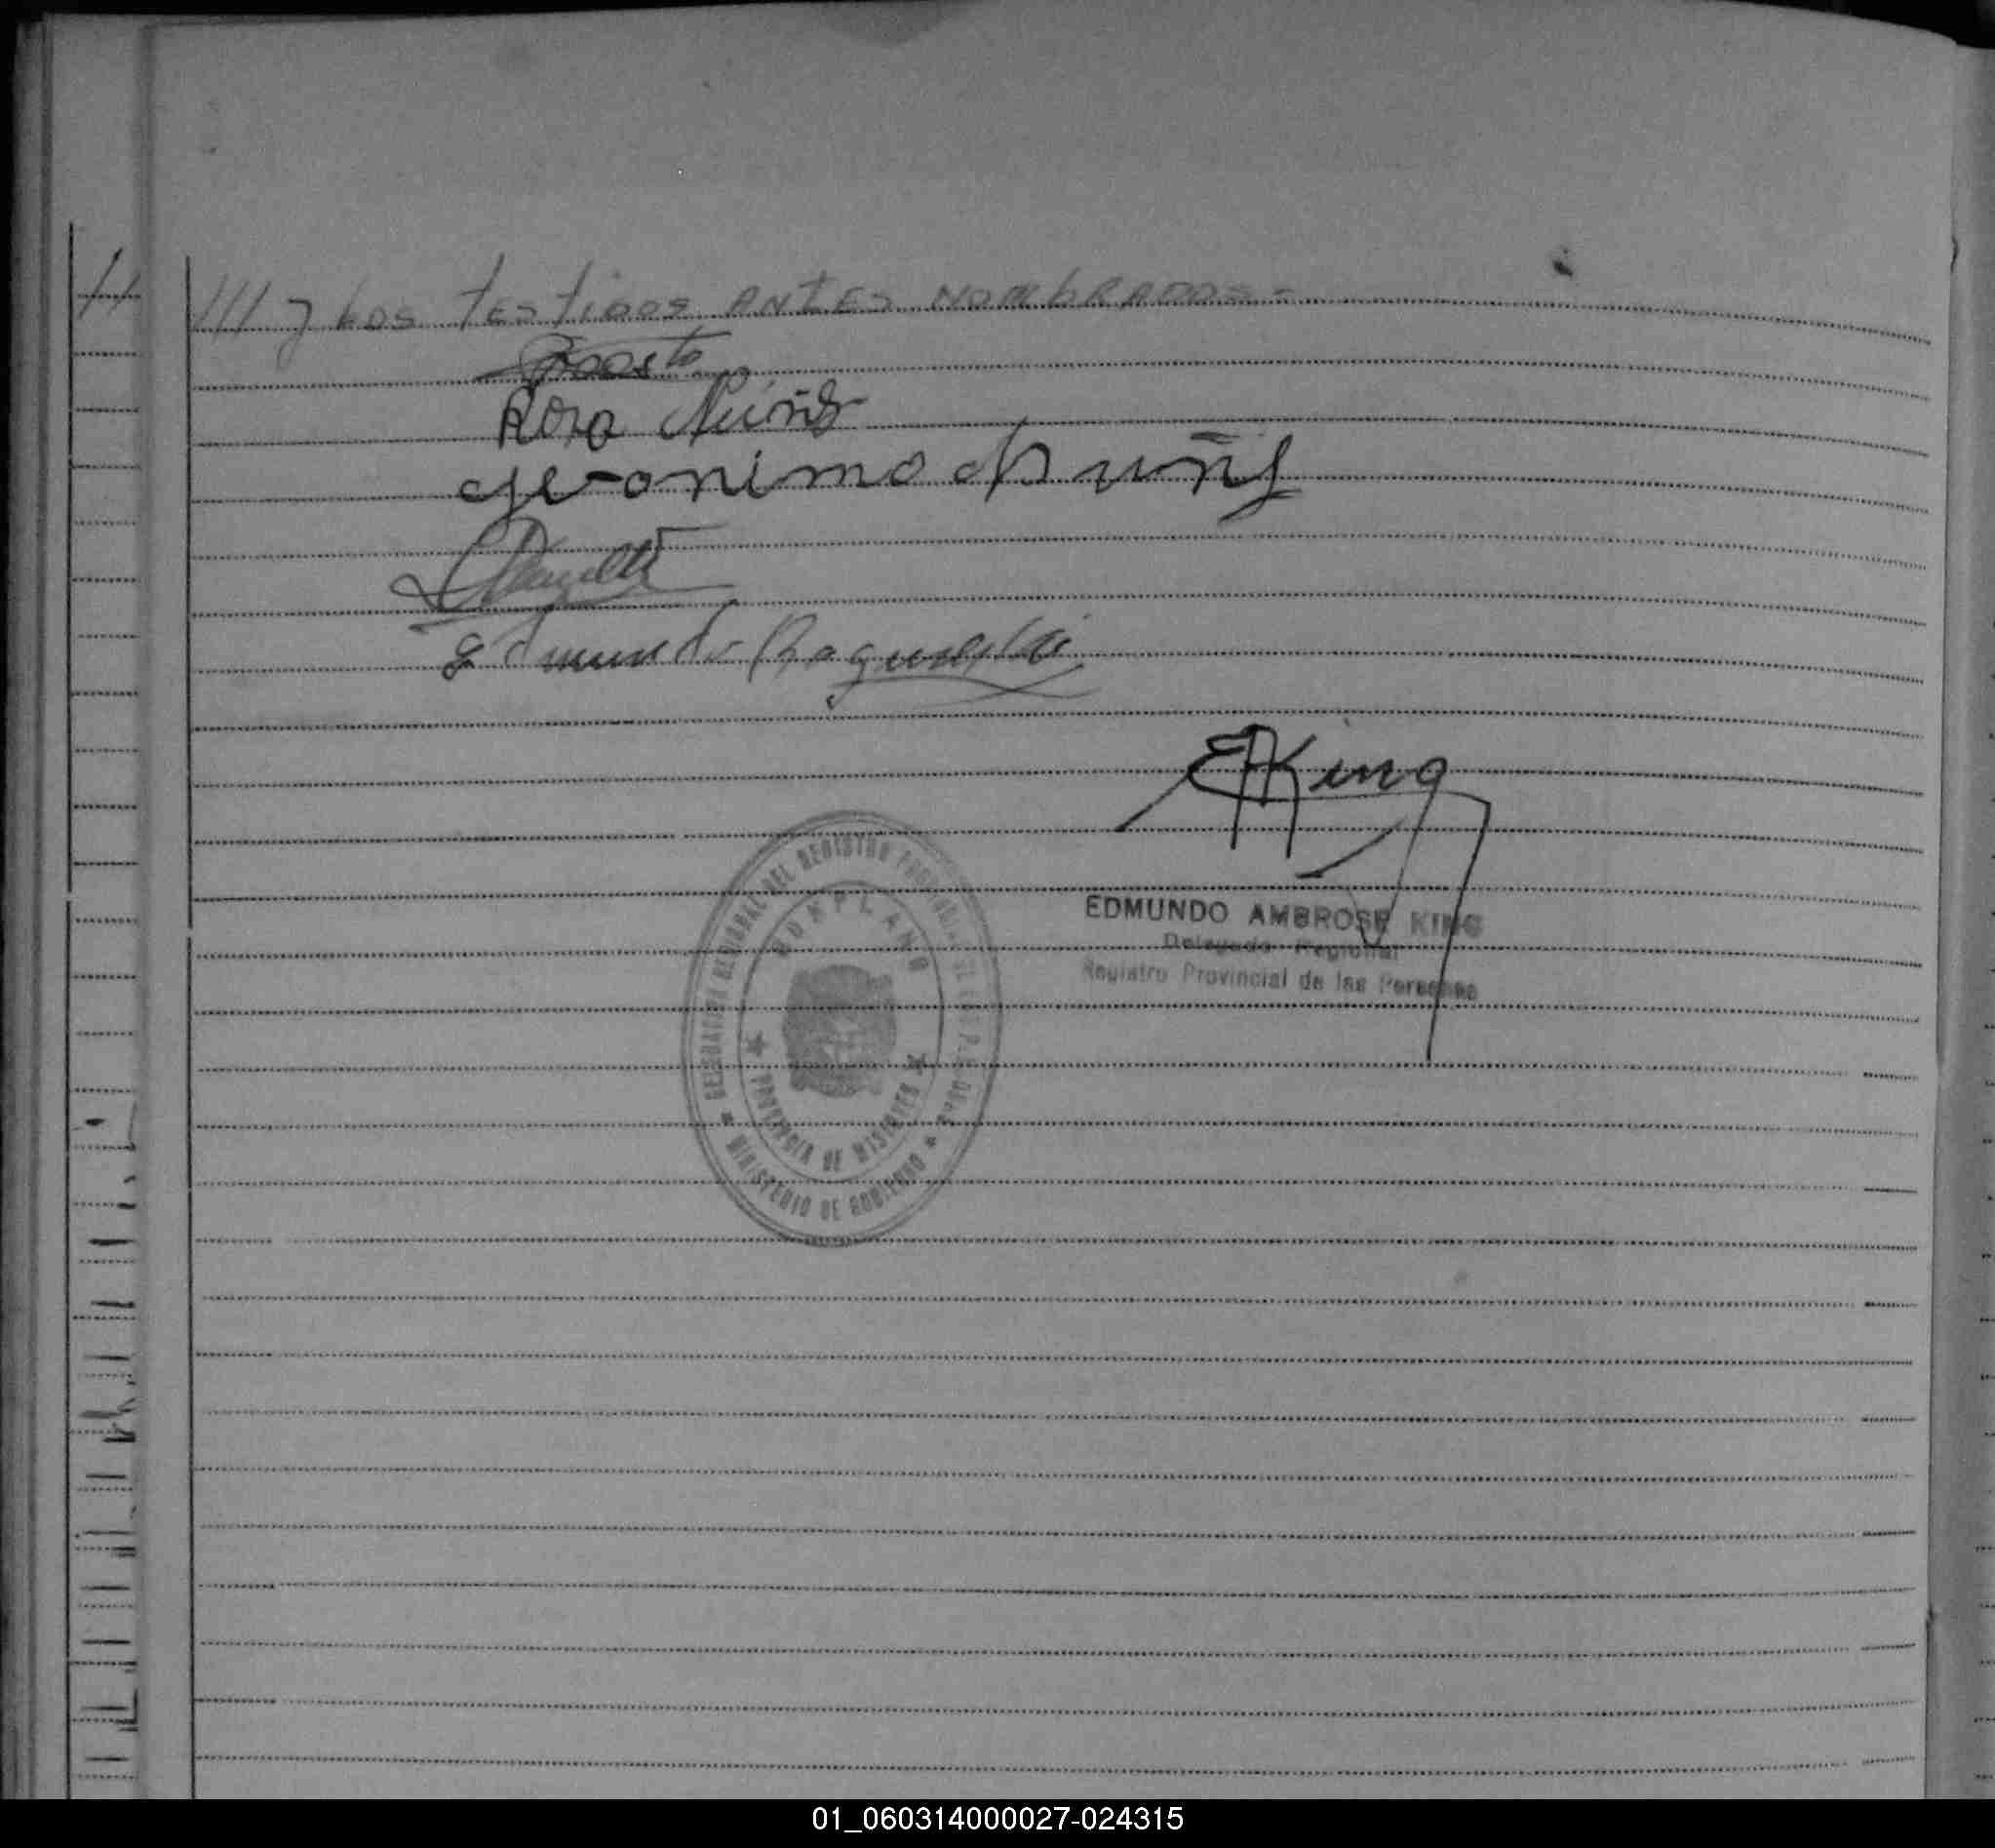 /// y los testigos antes nombrados=
Rosa Núñez
Geronimo Nuñez
Edmundo
EKing
EDMUNDO AMBROSE KING
Delegado Regional
Registro Provincial de las Personas
DELEGACION REGIONAL DEL REGISTRO PROVINCIAL DE LAS PERSONAS
BONPLAND
PROVINCIA DE MISIONES
MINISTERIO DE GOBIERNO
01_060314000027-024315